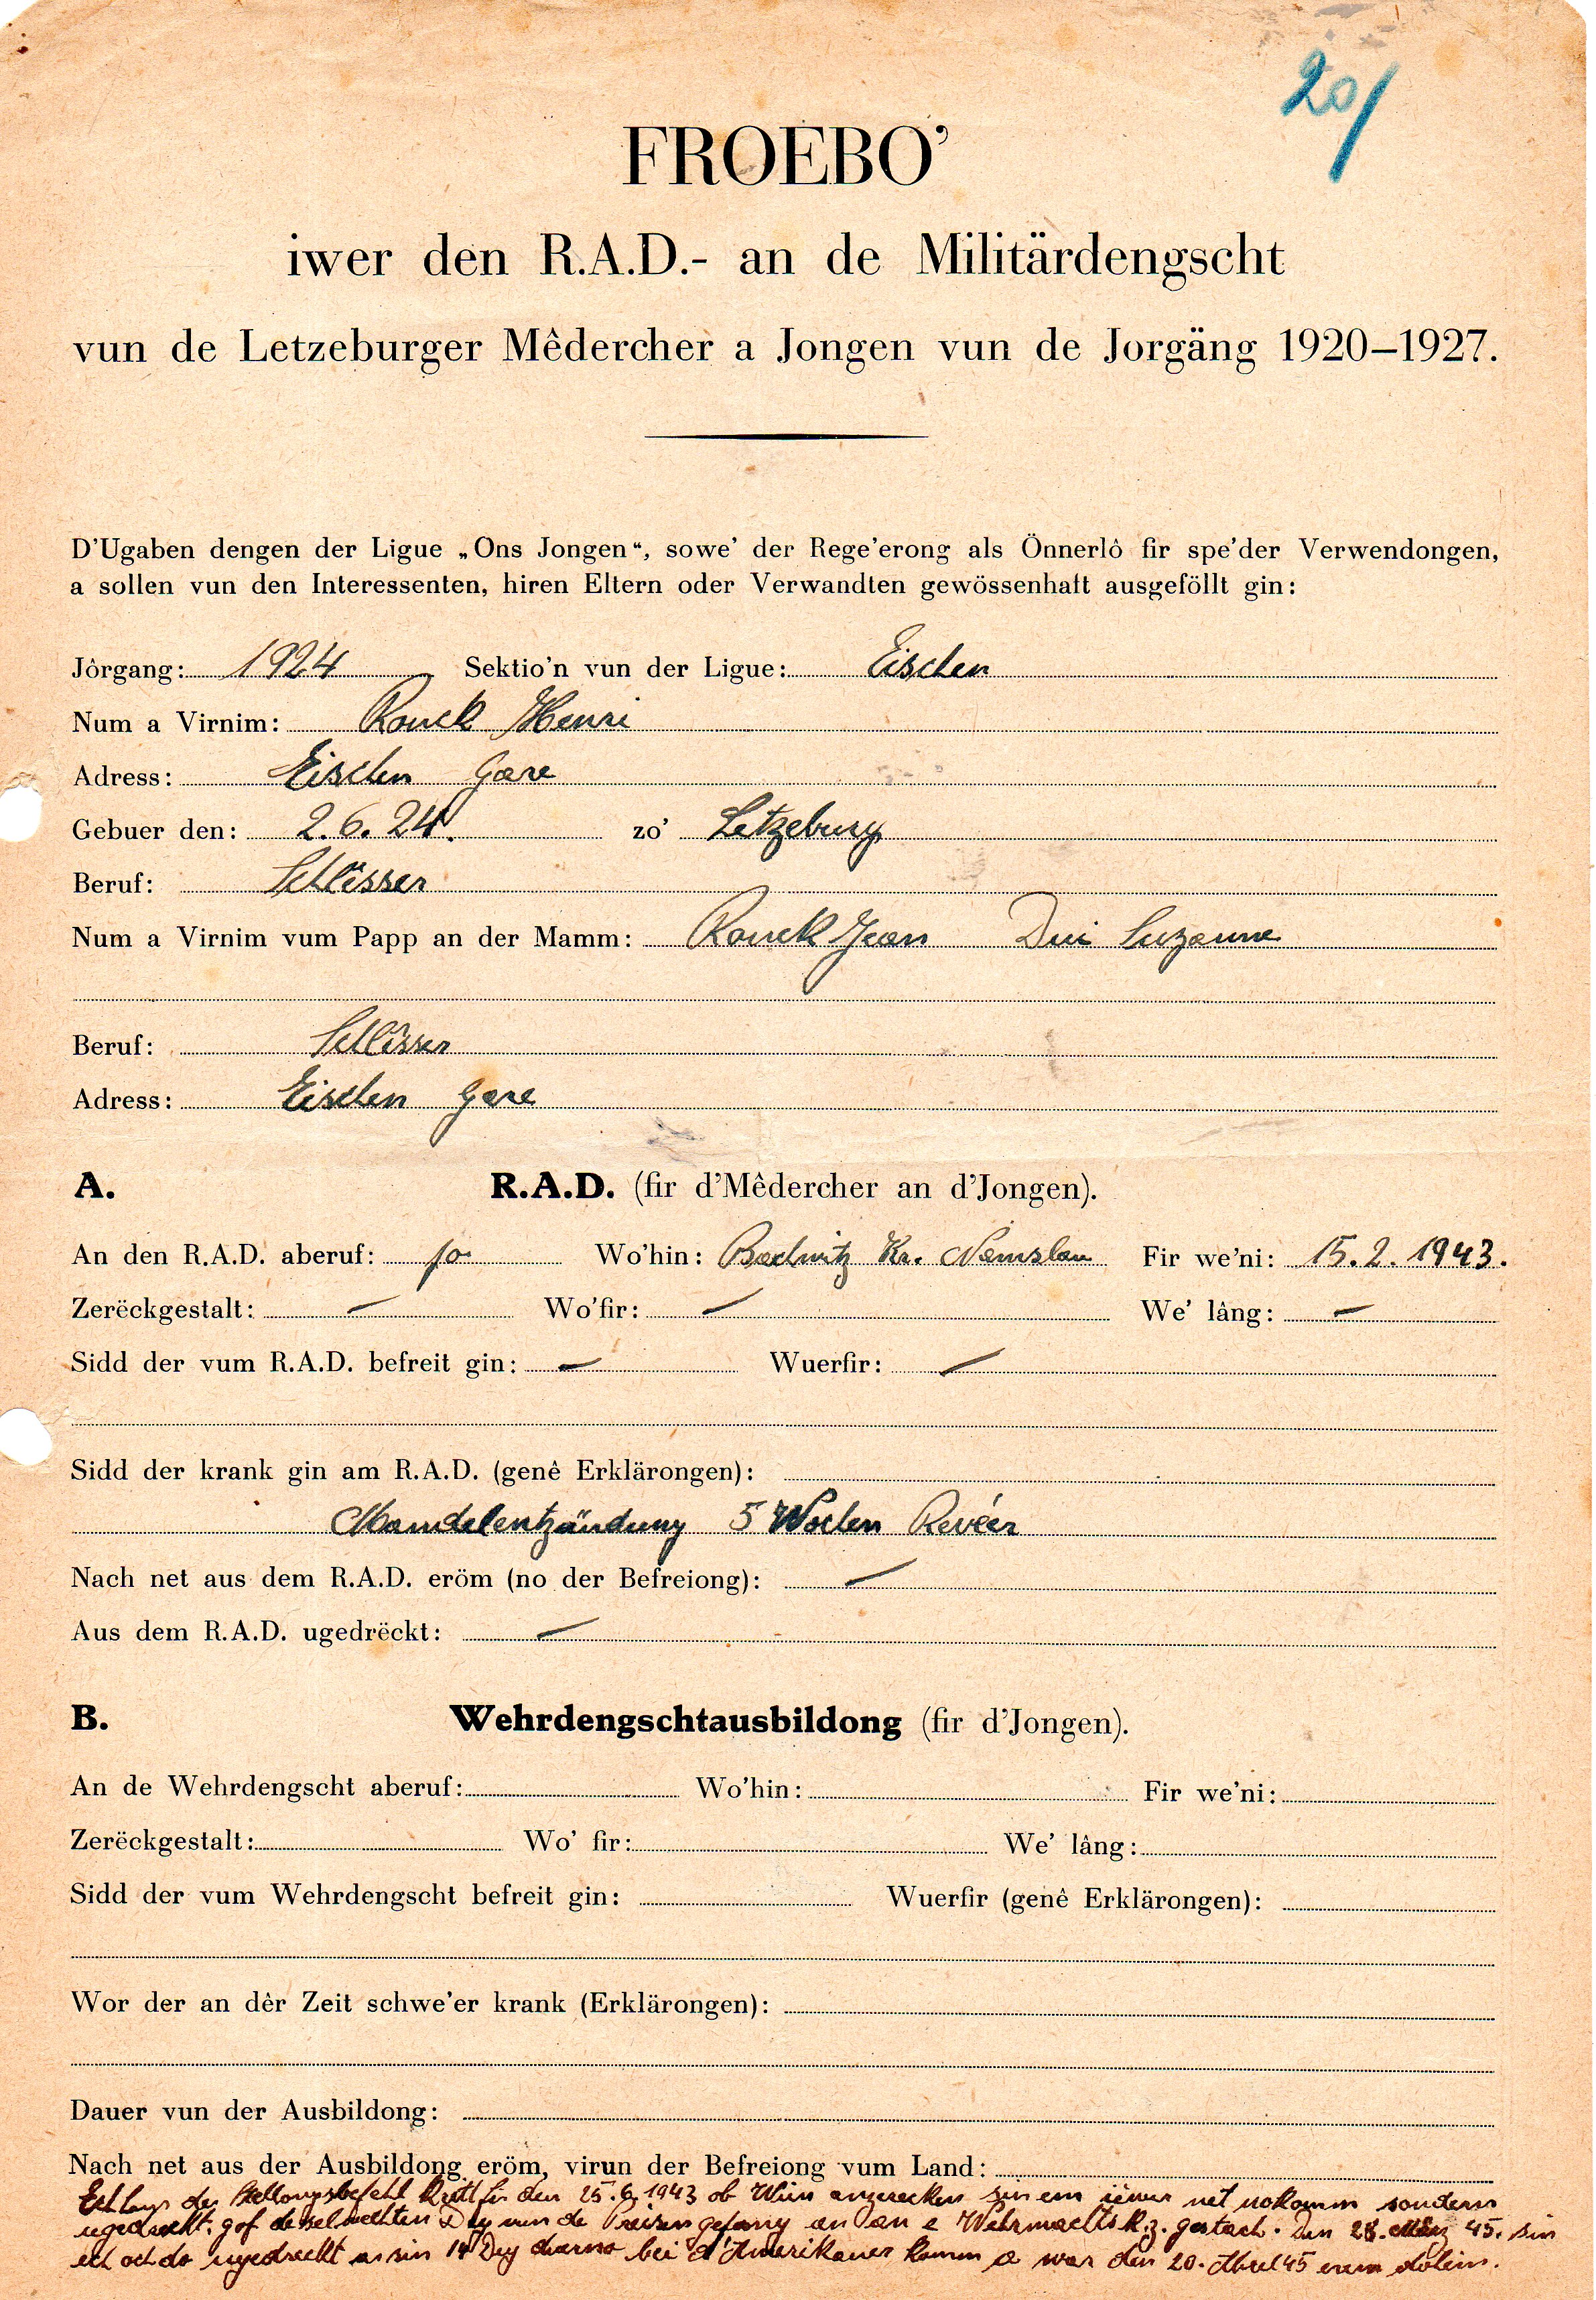 20/
FROEBO’
iwer den R.A.D.- an de Militärdengscht
vun de Letzeburger Mêdercher a Jongen vun de Jorgäng 1920–1927.
D’Ugaben dengen der Ligue „Ons Jongen“, sowe’ der Rege’erong als Önnerlô fir spe’der Verwendongen,
a sollen vun den Interessenten, hiren Eltern oder Verwandten gewössenhaft ausgeföllt gin:
Jôrgang: 1924 Sektio’n vun der Ligue: Eischen
Num a Virnim: Ronck Henri
Adress: Eischen Gare
Gebuer den: 2.6.24. zo’ Letzeburg
Beruf: Schlësser
Num a Virnim vum Papp an der Mamm: Ronck Jean Dui Suzanne
Beruf: Schlësser
Adress: Eischen Gare
A. R.A.D. (fir d’Mêdercher an d’Jongen).
An den R.A.D. aberuf: jo Wo’hin: Bachwitz Kr. Namslau Fir we’ni: 15.2.1943.
Zerëckgestalt: — Wo’fir: — We’ lâng: —
Sidd der vum R.A.D. befreit gin: — Wuerfir: —
Sidd der krank gin am R.A.D. (genê Erklärongen):
Mandelentzündung 5 Wochen Revéer
Nach net aus dem R.A.D. eröm (no der Befreiong): —
Aus dem R.A.D. ugedrëckt: —
B. Wehrdengschtausbildong (fir d’Jongen).
An de Wehrdengscht aberuf: Wo’hin: Fir we’ni:
Zerëckgestalt: Wo’ fir: We’ lâng:
Sidd der vum Wehrdengscht befreit gin: Wuerfir (genê Erklärongen):
Wor der an dêr Zeit schwe’er krank (Erklärongen):
Dauer vun der Ausbildong:
Nach net aus der Ausbildong eröm, virun der Befreiong vum Land:
Ech den Stellongsbefehl fir den 25.6.1943 ob Wien anzerecken sin em net nokomm sondern
gof deselwechten Dag vun de Preisen gefang an an e Wehrmachts K.z. gestach. Den 28. März 45. sin
ech och do ugedreckt a sin 14 Deg bei d'Amerikaner komm a war den 20. Abrel 45 erem doheim.